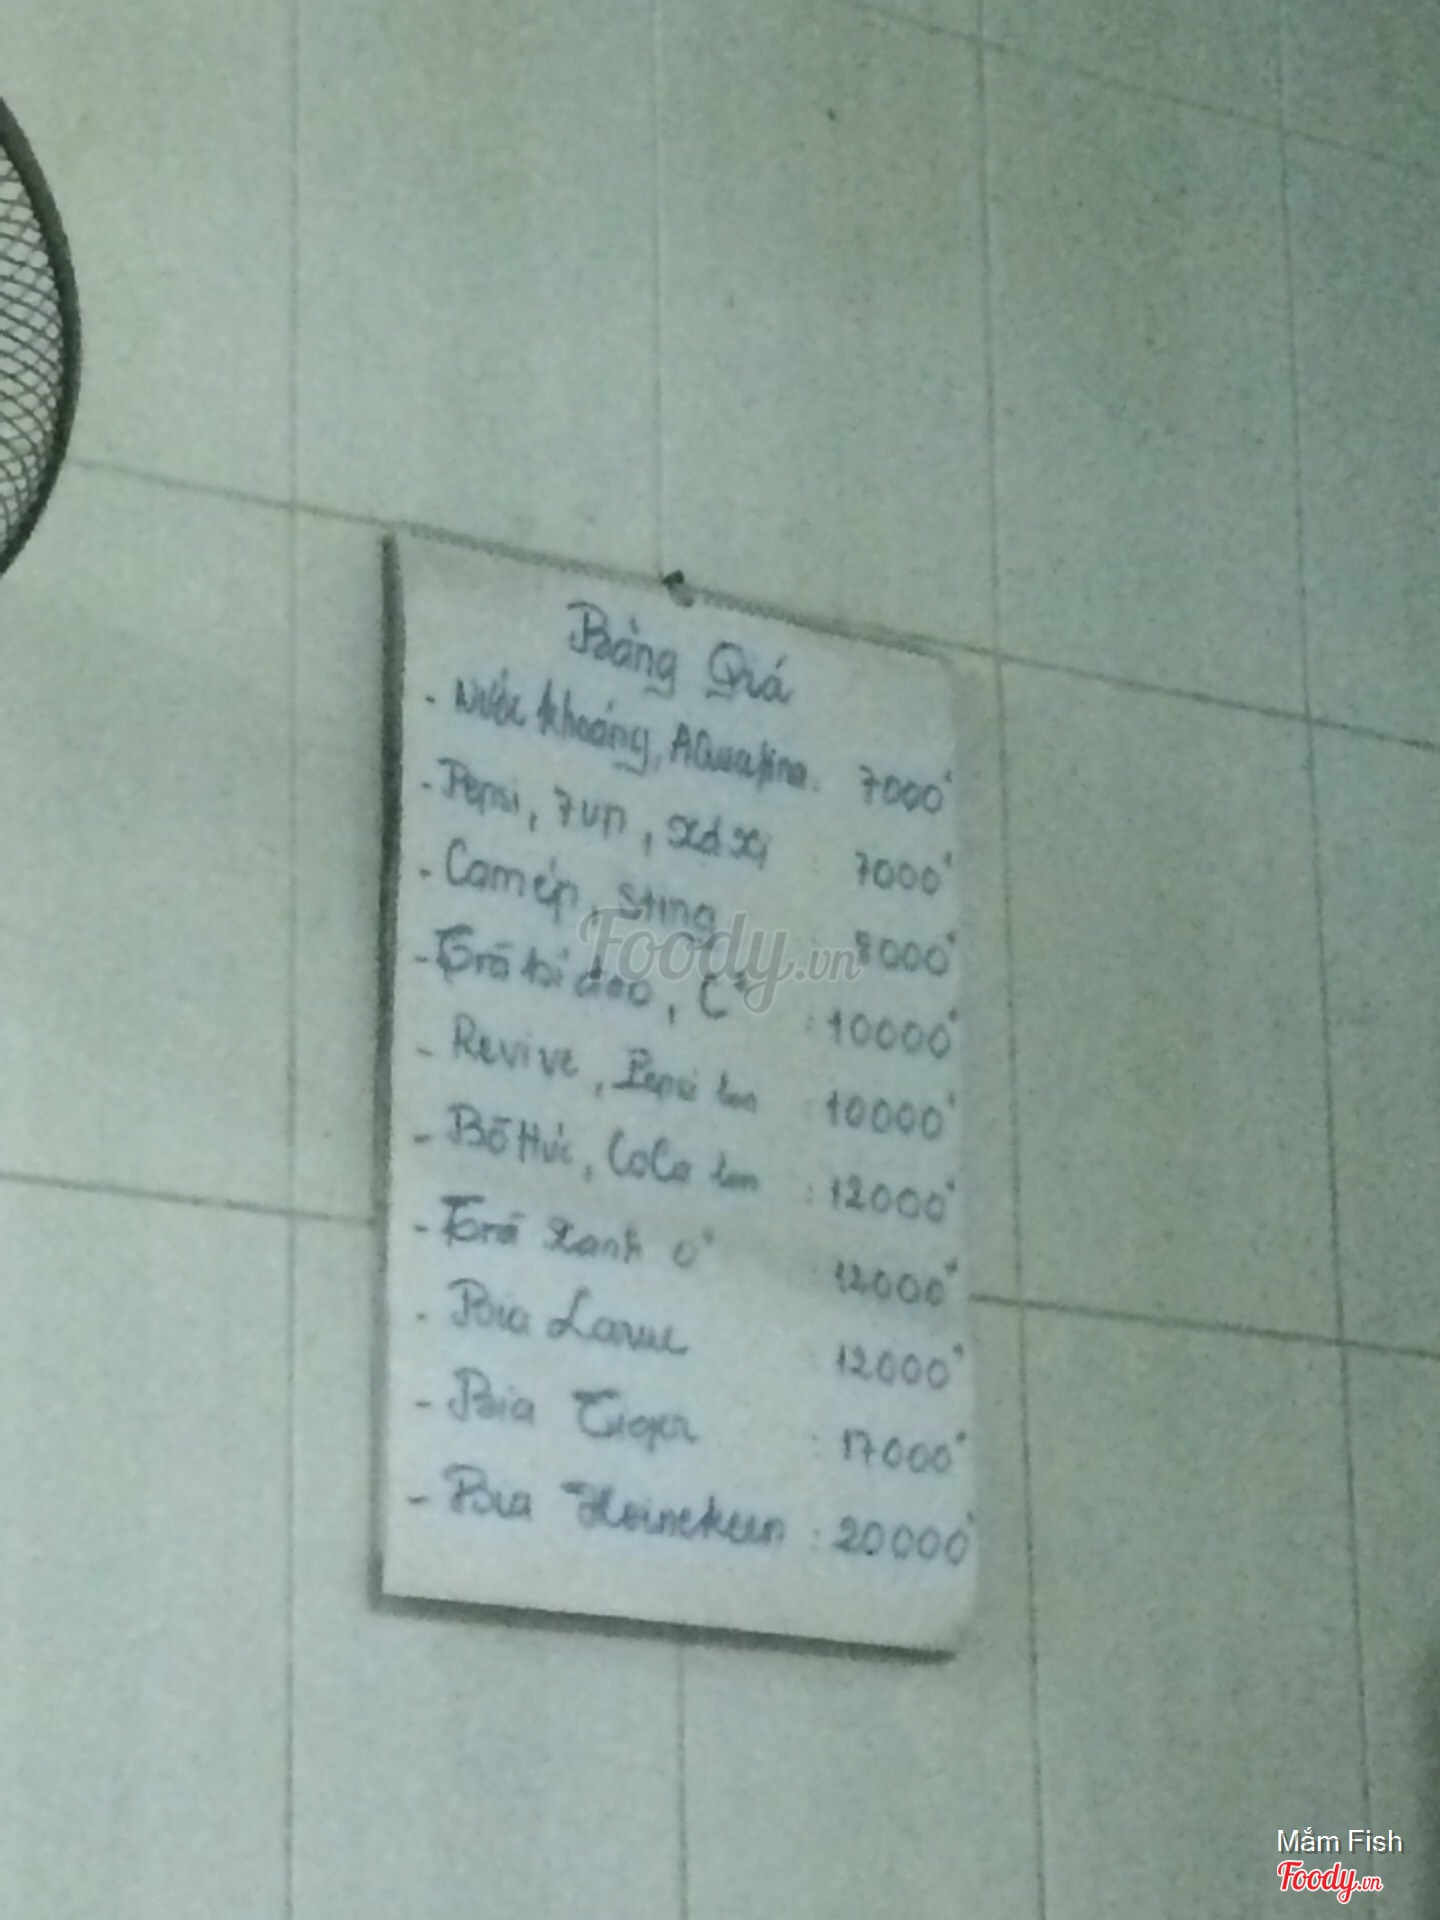 Bảng Giá
- Nước khoáng, AQuafina. 7000đ
- Pepsi, 7up, xá xị : 7000đ
- Cam ép, sting : 8000đ
- Trà bí đao, C² : 10000đ
- Revive, Pepsi lon : 10000đ
- Bò Húc, CoCa lon : 12000đ
- Trà Xanh 0° 12000đ
- Bia Larue : 12000đ
- Bia Tiger : 17000đ
- Bia Heineken : 20000đ
Foody.vn
Mắm Fish
Foody.vn